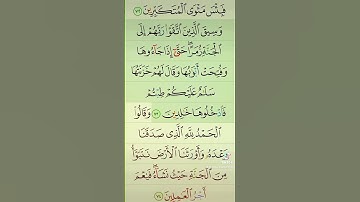 فَبِئْسَ مَثْوَى ٱلْمُتَكَبِّرِينَ ٧٢
وَسِيقَ ٱلَّذِينَ ٱتَّقَوْا۟ رَبَّهُمْ إِلَى
ٱلْجَنَّةِ زُمَرًا ۖ حَتَّىٰٓ إِذَا جَآءُوهَا
وَفُتِحَتْ أَبْوَٰبُهَا وَقَالَ لَهُمْ خَزَنَتُهَا
سَلَـٰمٌ عَلَيْكُمْ طِبْتُمْ
فَٱدْخُلُوهَا خَـٰلِدِينَ ٧٣ وَقَالُوا۟
ٱلْحَمْدُ لِلَّهِ ٱلَّذِى صَدَقَنَا
وَعْدَهُۥ وَأَوْرَثَنَا ٱلْأَرْضَ نَتَبَوَّأُ
مِنَ ٱلْجَنَّةِ حَيْثُ نَشَآءُ ۖ فَنِعْمَ
أَجْرُ ٱلْعَـٰمِلِينَ ٧٤